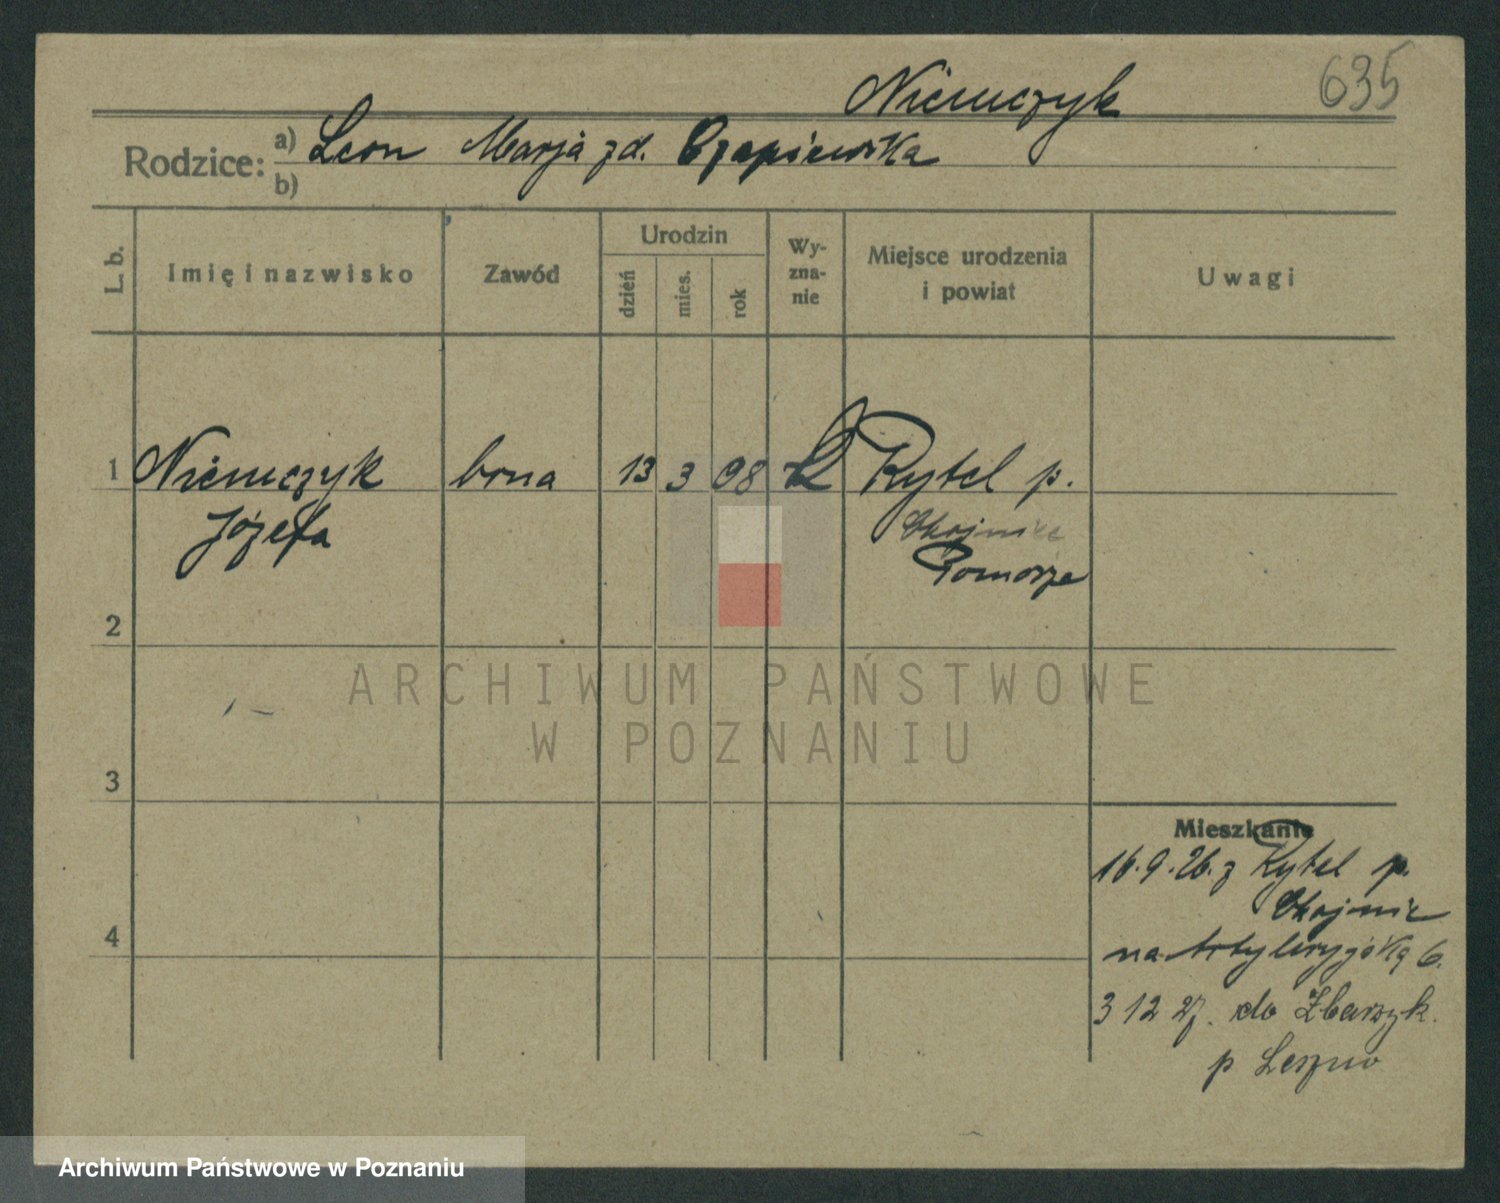 Niemczyk
635
Rodzice: a) Leon Marja zd. Czapiewska
b)
L. b.
Imię i nazwisko
Zawód
Urodzin
dzień
mies.
rok
Wy-
zna-
nie
Miejsce urodzenia
i powiat
Uwagi
1 Niemczyk bona 13 3 08 Rytel p.
Józefa
Chojnice
Pomorze
2
ARCHIWUM PAŃSTWOWE
W POZNANIU
3
Mieszkanie
16.9.26. z Rytel p.
Chojnic
4
na Artyleryjską 6.
3 12 27. do Zbarzyk.
p Leszno
Archiwum Państwowe w Poznaniu